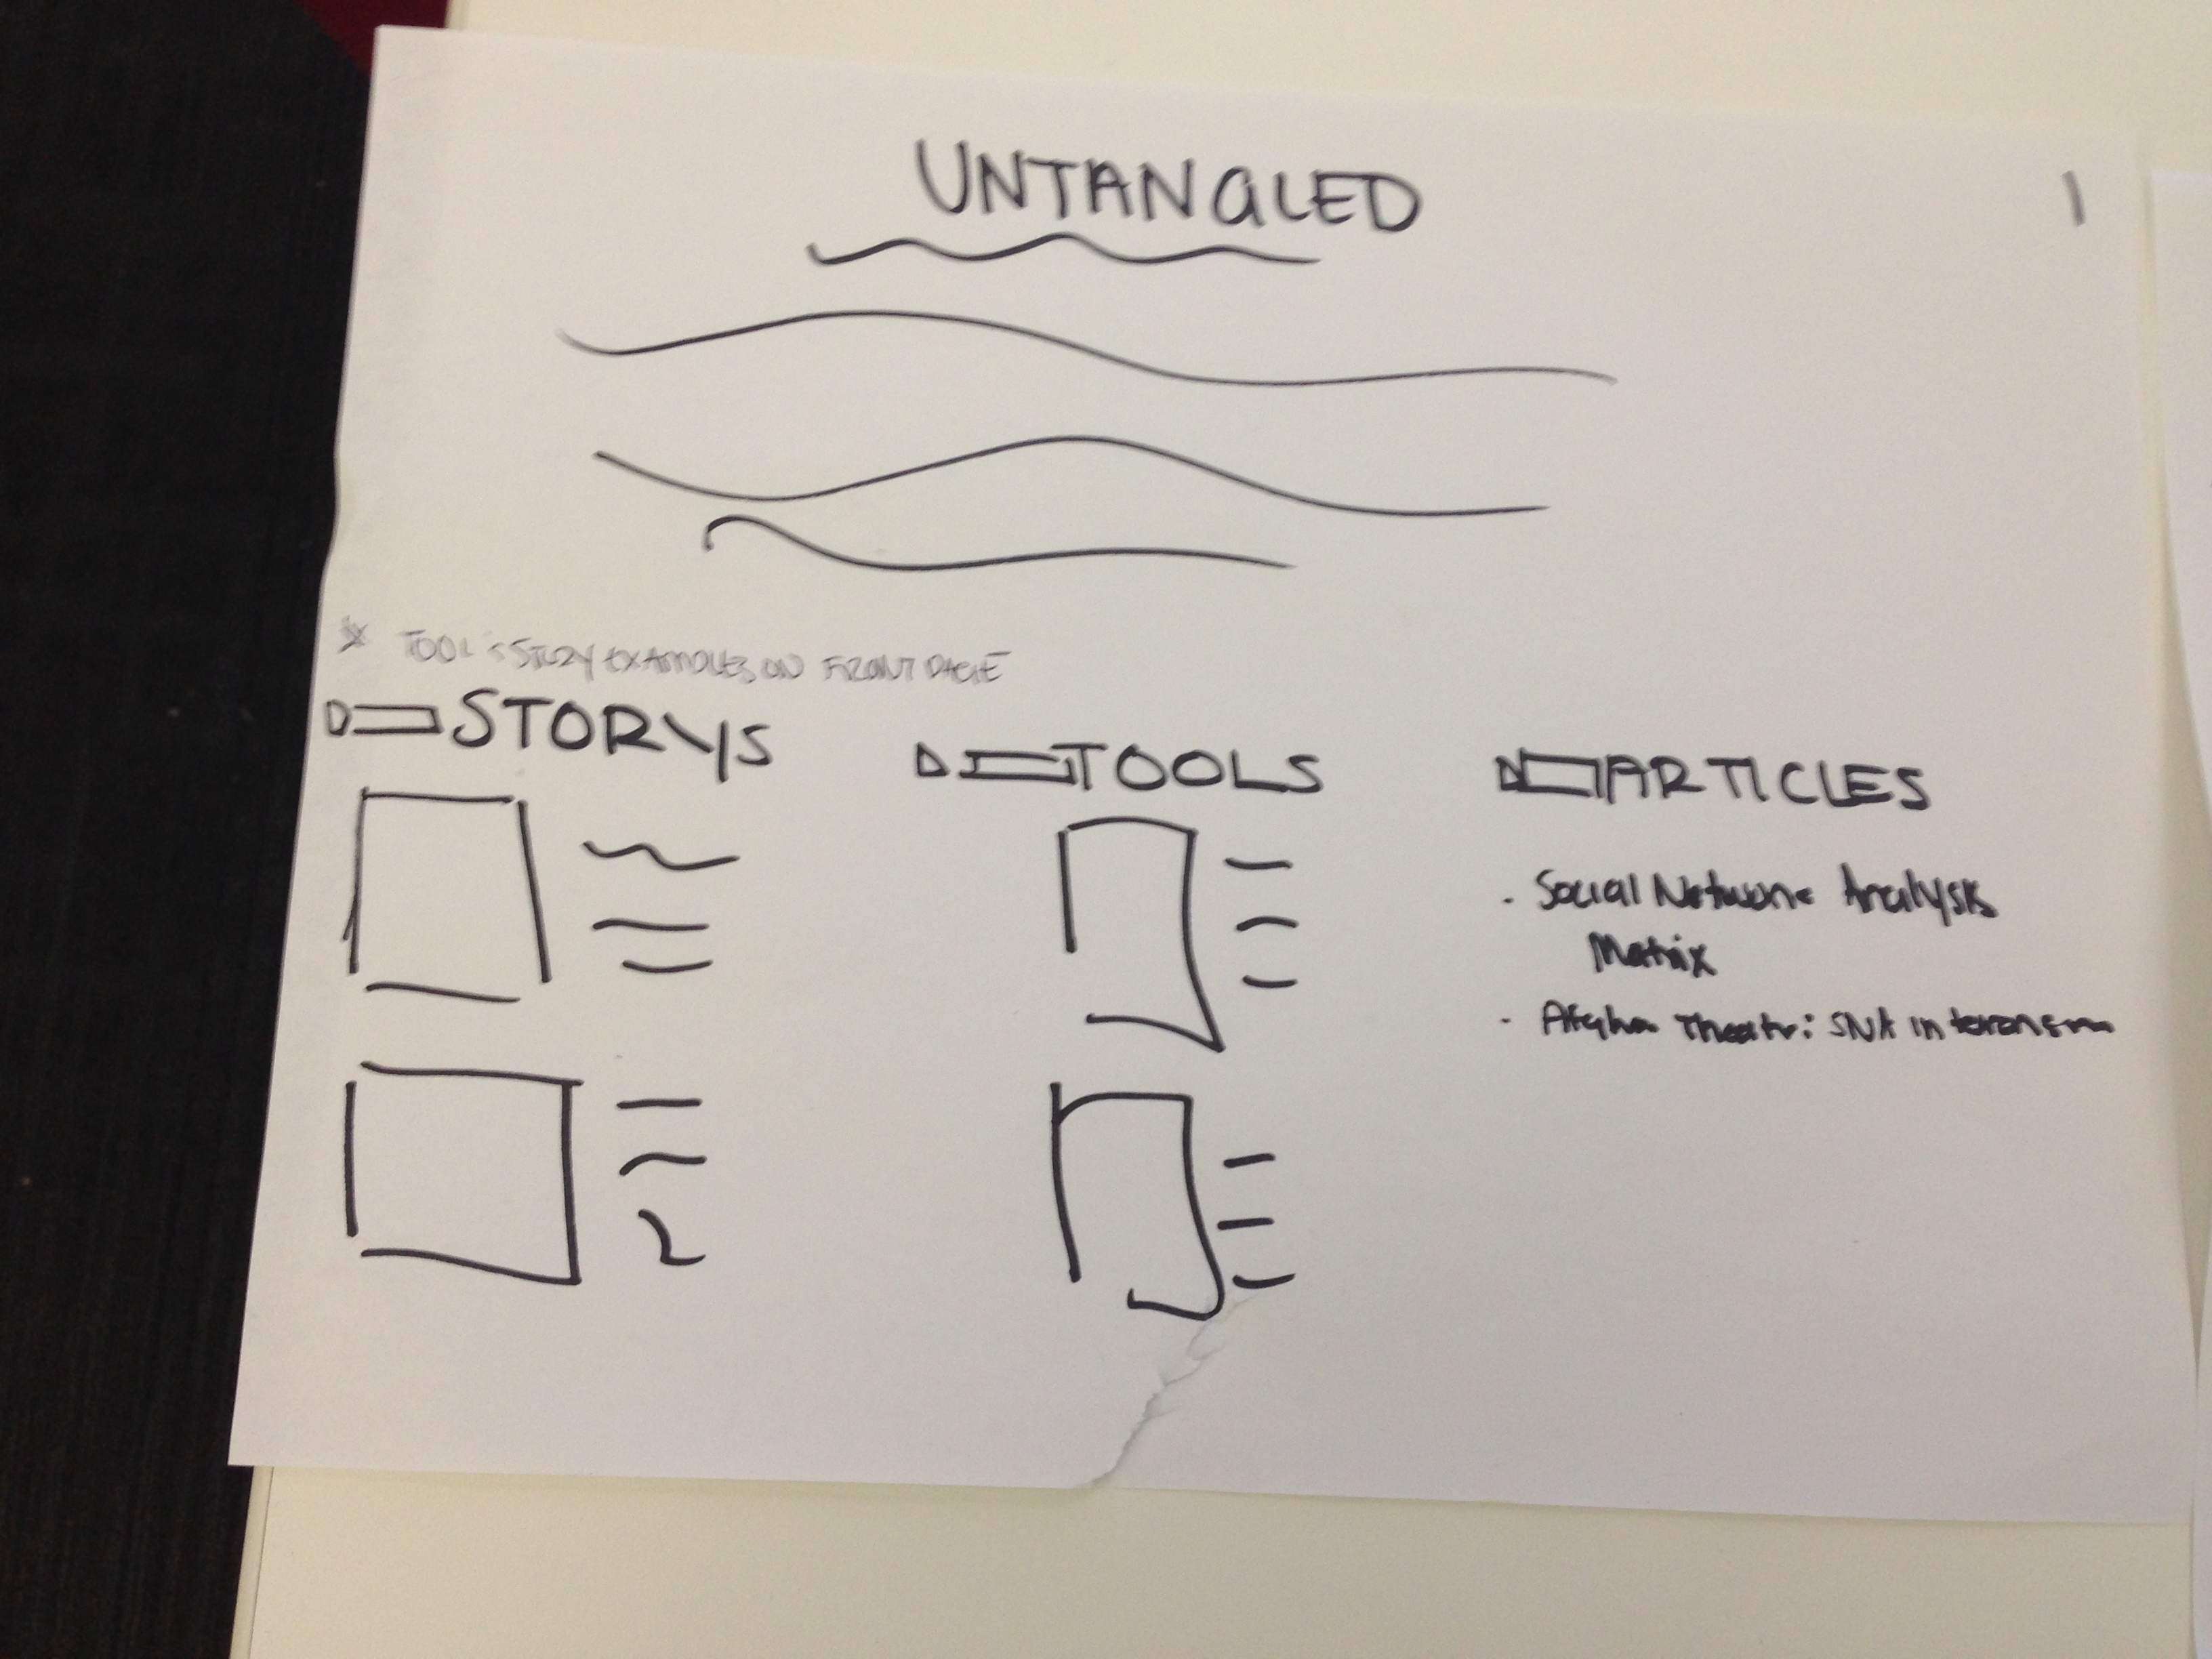 UNTANGLED
1
* TOOL & STORY EXAMPLES ON FRONT PAGE
STORYS
TOOLS
ARTICLES
· Social Network Analysis
Matrix
· Afghan Theatre: SNA in terrorism